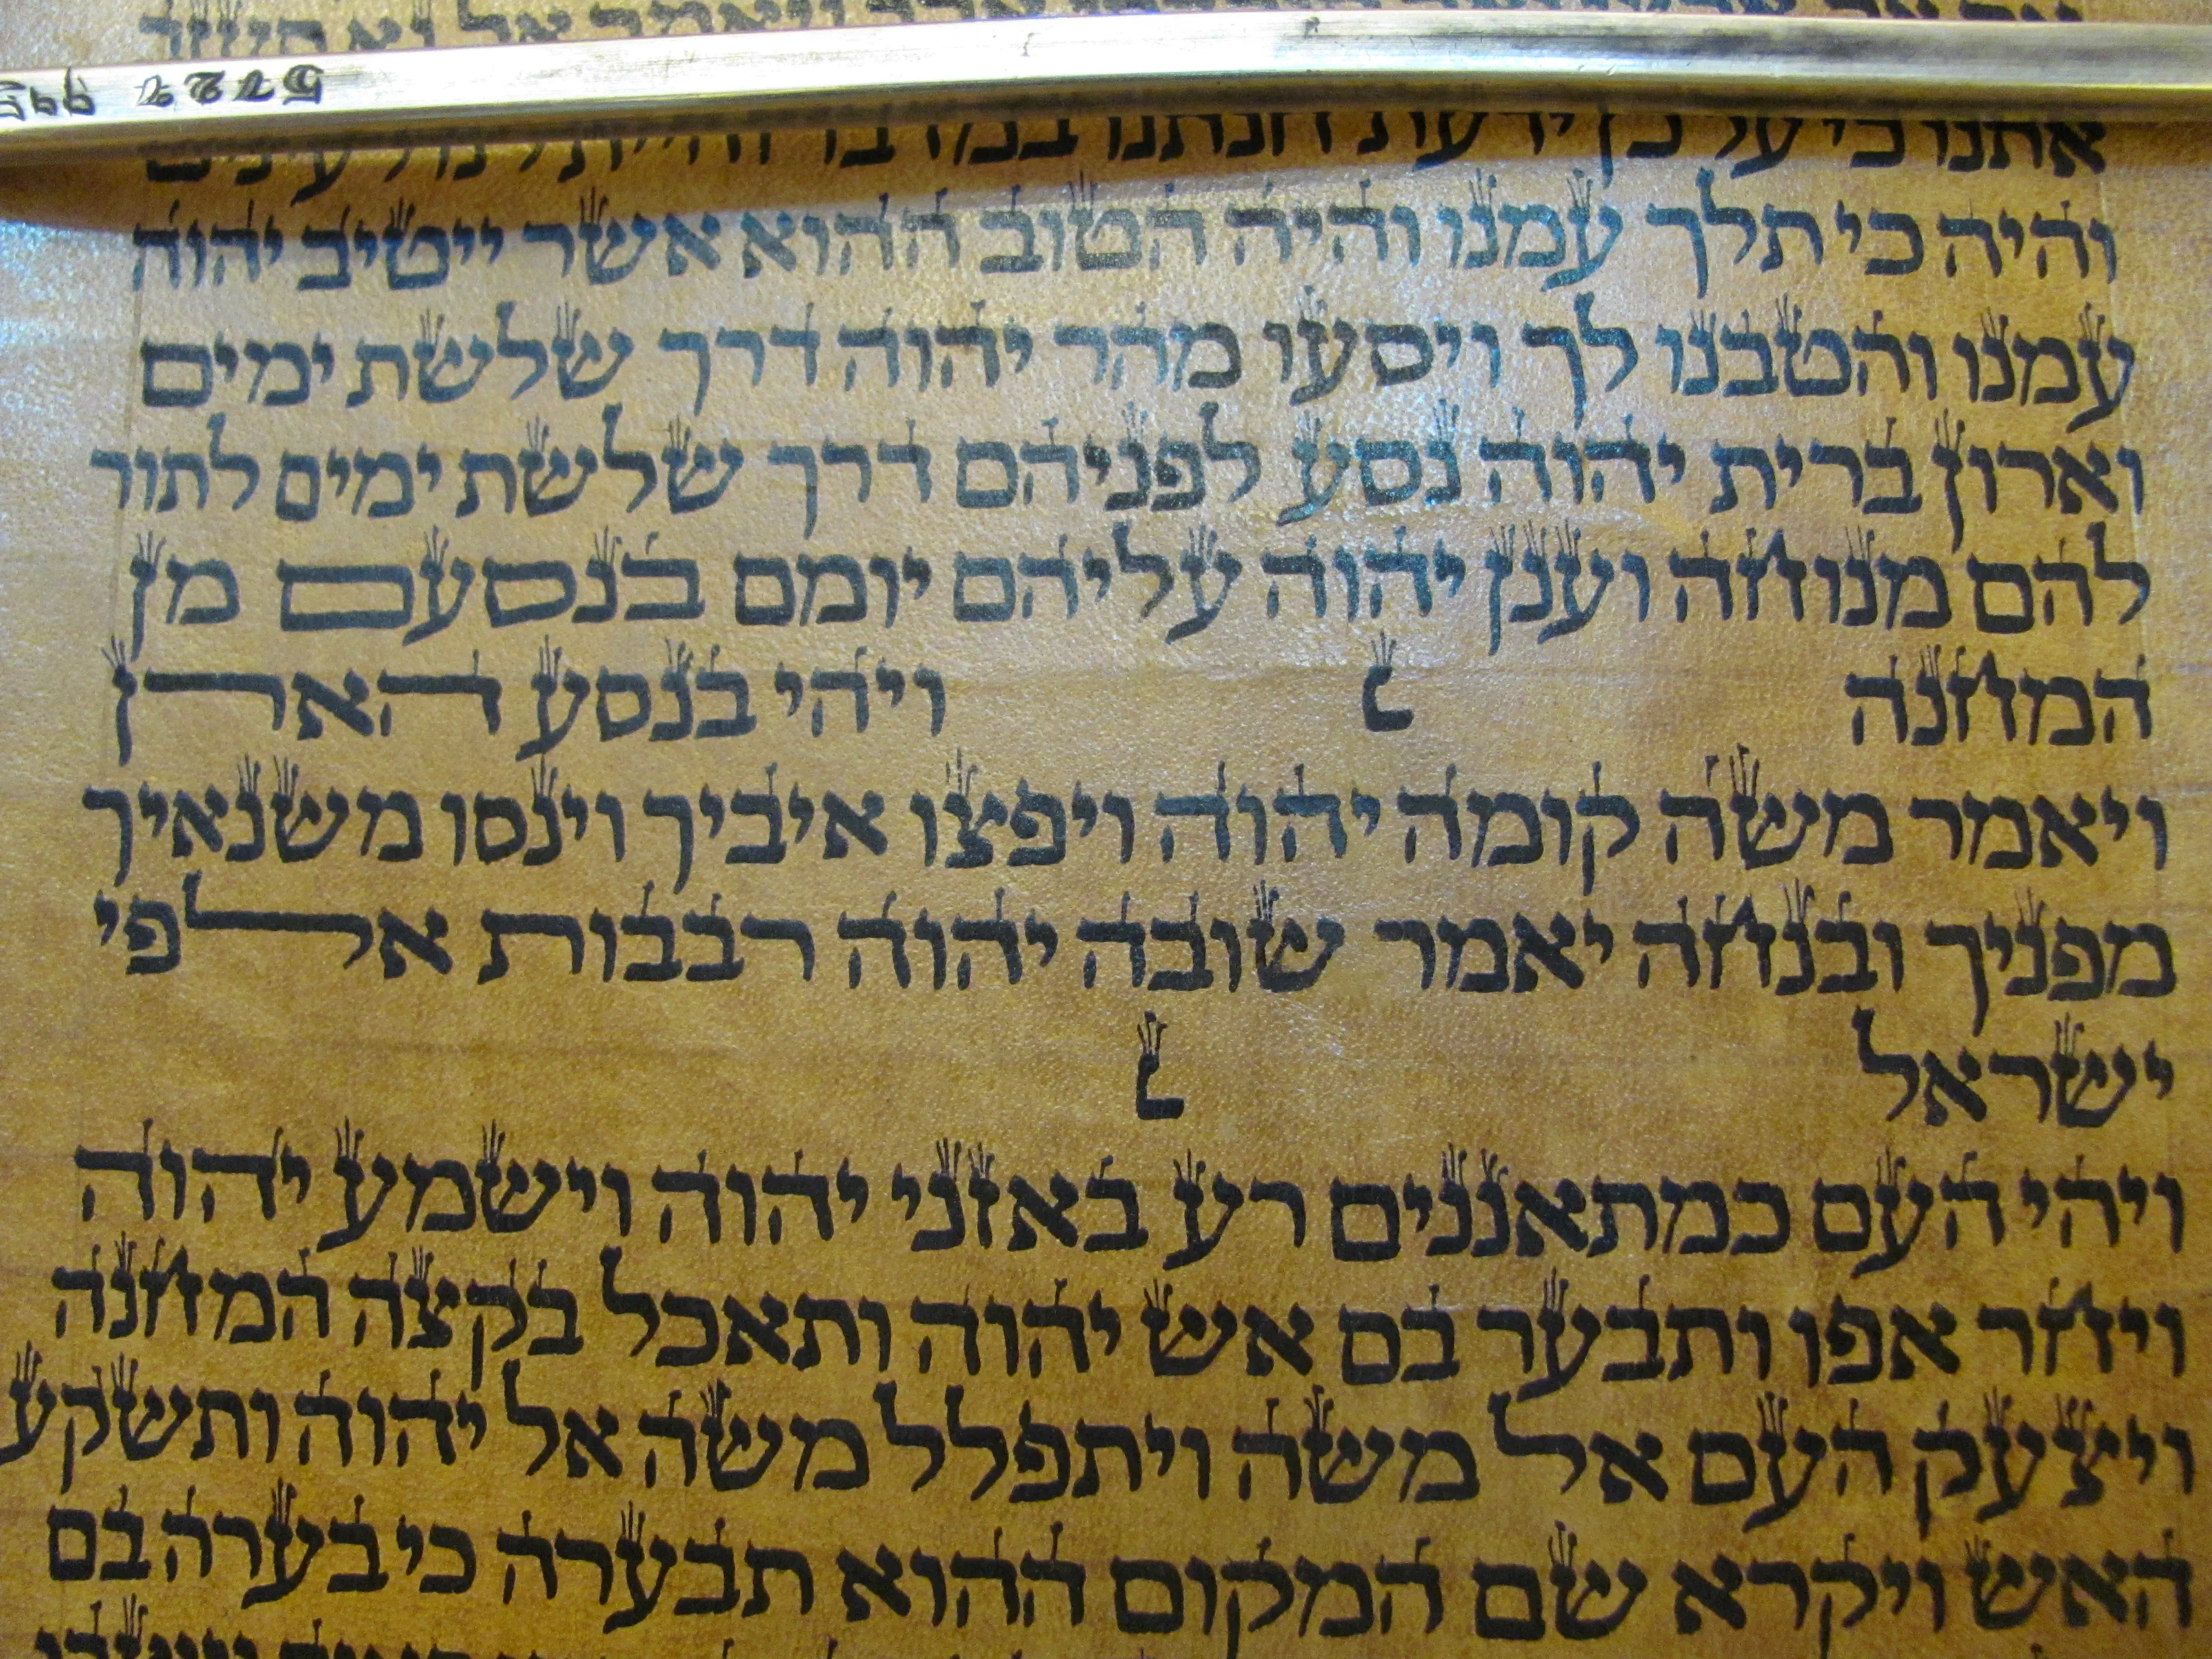 אתנו כי על כן ידעת חנתנו במדבר והיית לנו לעינים
והיה כי תלך עמנו והיה הטוב ההוא אשר ייטיב יהוה
עמנו והטבנו לך ויסעו מהר יהוה דרך שלשת ימים
וארון ברית יהוה נסע לפניהם דרך שלשת ימים לתור
להם מנוחה וענן יהוה עליהם יומם בנסעם מן
המחנה ׆ ויהי בנסע הארן
ויאמר משה קומה יהוה ויפצו איביך וינסו משנאיך
מפניך ובנחה יאמר שובה יהוה רבבות אלפי
ישראל ׆
ויהי העם כמתאננים רע באזני יהוה וישמע יהוה
ויחר אפו ותבער בם אש יהוה ותאכל בקצה המחנה
ויצעק העם אל משה ויתפלל משה אל יהוה ותשקע
האש ויקרא שם המקום ההוא תבערה כי בערה בם